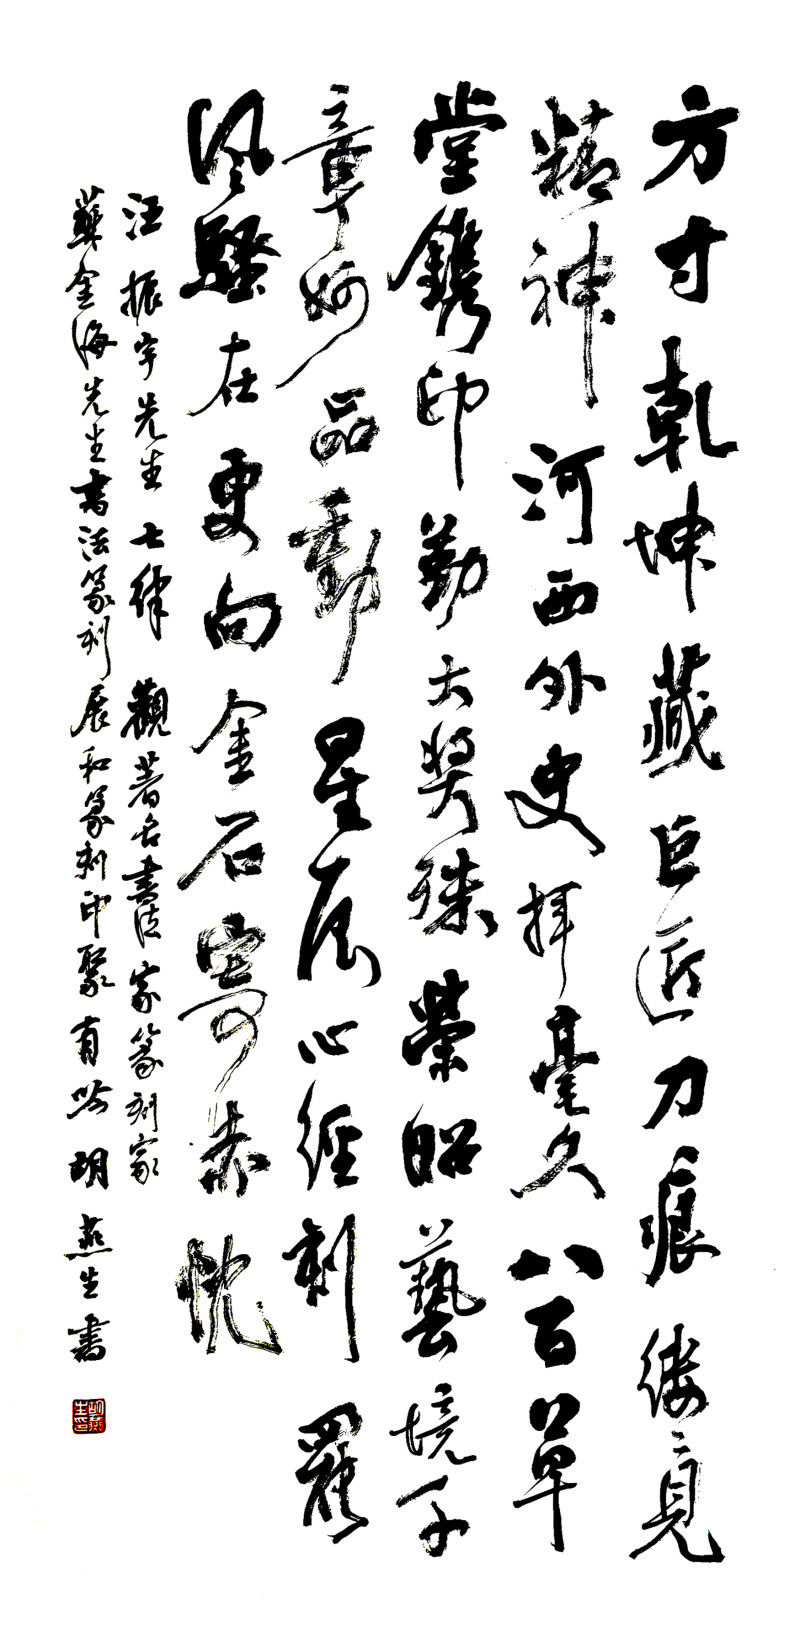 方寸乾坤藏巨匠刀痕縷縷見
精神河西外史揮毫久八百草
堂鐫印勤大獎殊榮昭藝境千
章妙品動星辰心經刻罷
風騷在更向金石寄赤忱
汪振宇先生七律觀著名書法家篆刻家
蘇金海先生書法篆刻展和篆刻印聚有感胡燕生書